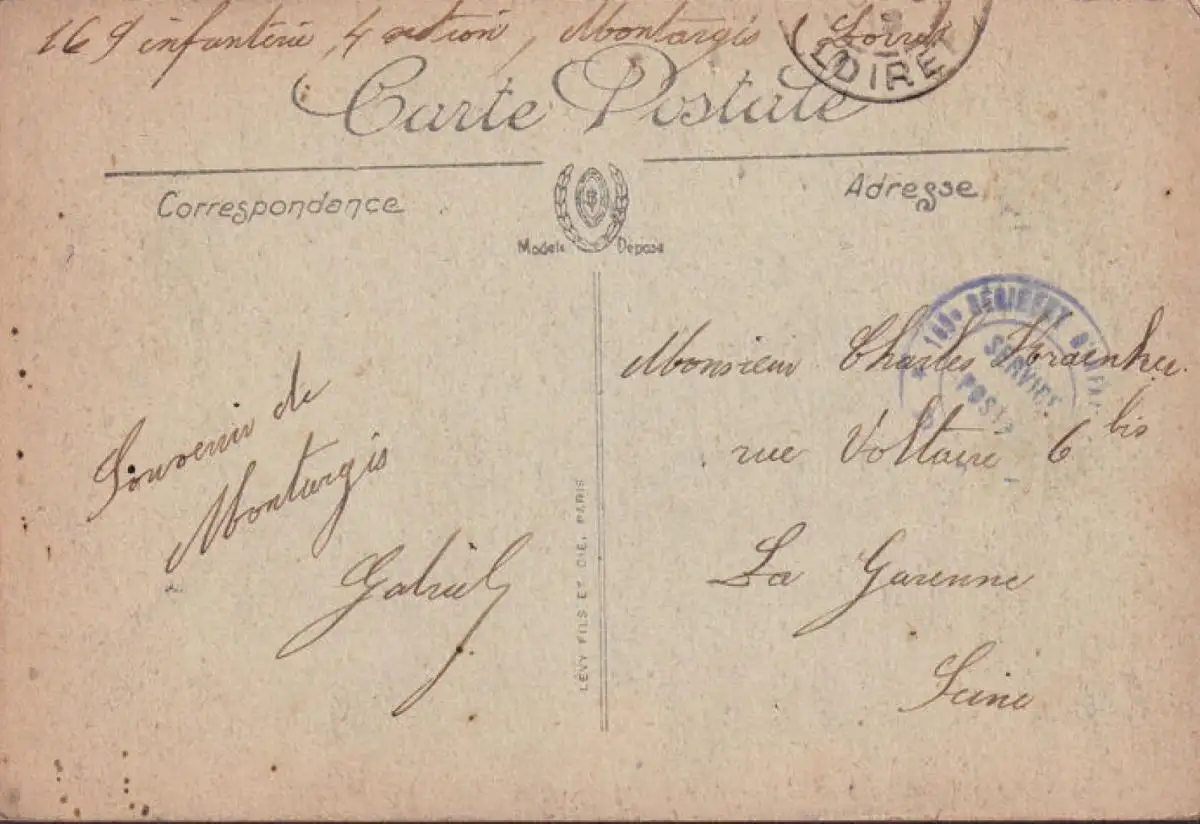 169 infanterie, 4 section, Montargis Loiret
LOIRET
Carte Postale
Correspondance
Adresse
Modèle Déposé
169e RÉGIMENT D'INFAN
SERVICE
POSTA
Monsieur Charles
rue Voltaire 6 bis
La Garenne
Seine
Souvenir de
Montargis
Gabriel
LÉVY FILS ET CIE, PARIS